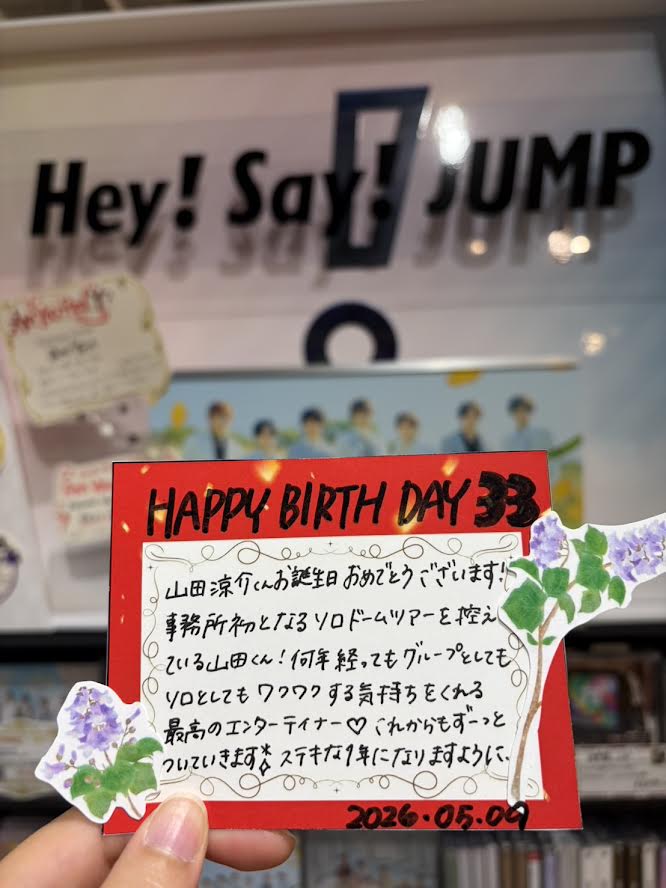 Hey! Say! JUMP
HAPPY BIRTH DAY 33
山田涼介くんお誕生日おめでとうございます!
事務所初となるソロドームツアーを控え
ている山田くん!何年経ってもグループとしても
ソロとしてもワクワクする気持ちをくれる
最高のエンターテイナー♡これからもずーっと
ついていきます ステキな1年になりますように、
2026.05.09